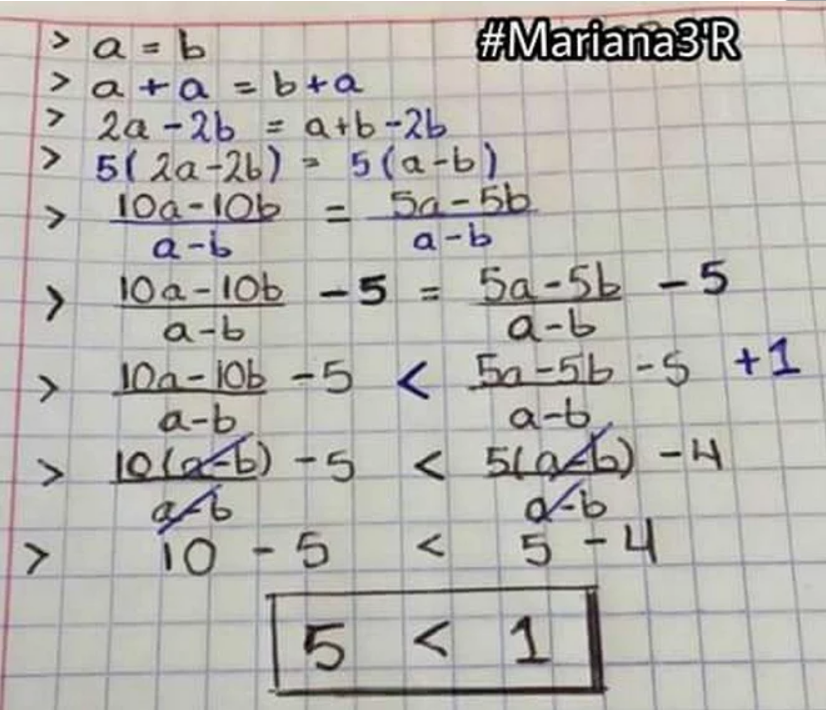 #Mariana3'R
> a = b
> a + a = b + a
> 2a - 2b = a + b - 2b
> 5(2a - 2b) = 5(a - b)
> 10a - 10b / a - b = 5a - 5b / a - b
> 10a - 10b / a - b - 5 = 5a - 5b / a - b - 5
> 10a - 10b / a - b - 5 < 5a - 5b / a - b - 5 + 1
> 10(a - b) / a - b - 5 < 5(a - b) / a - b - 4
> 10 - 5 < 5 - 4
5 < 1